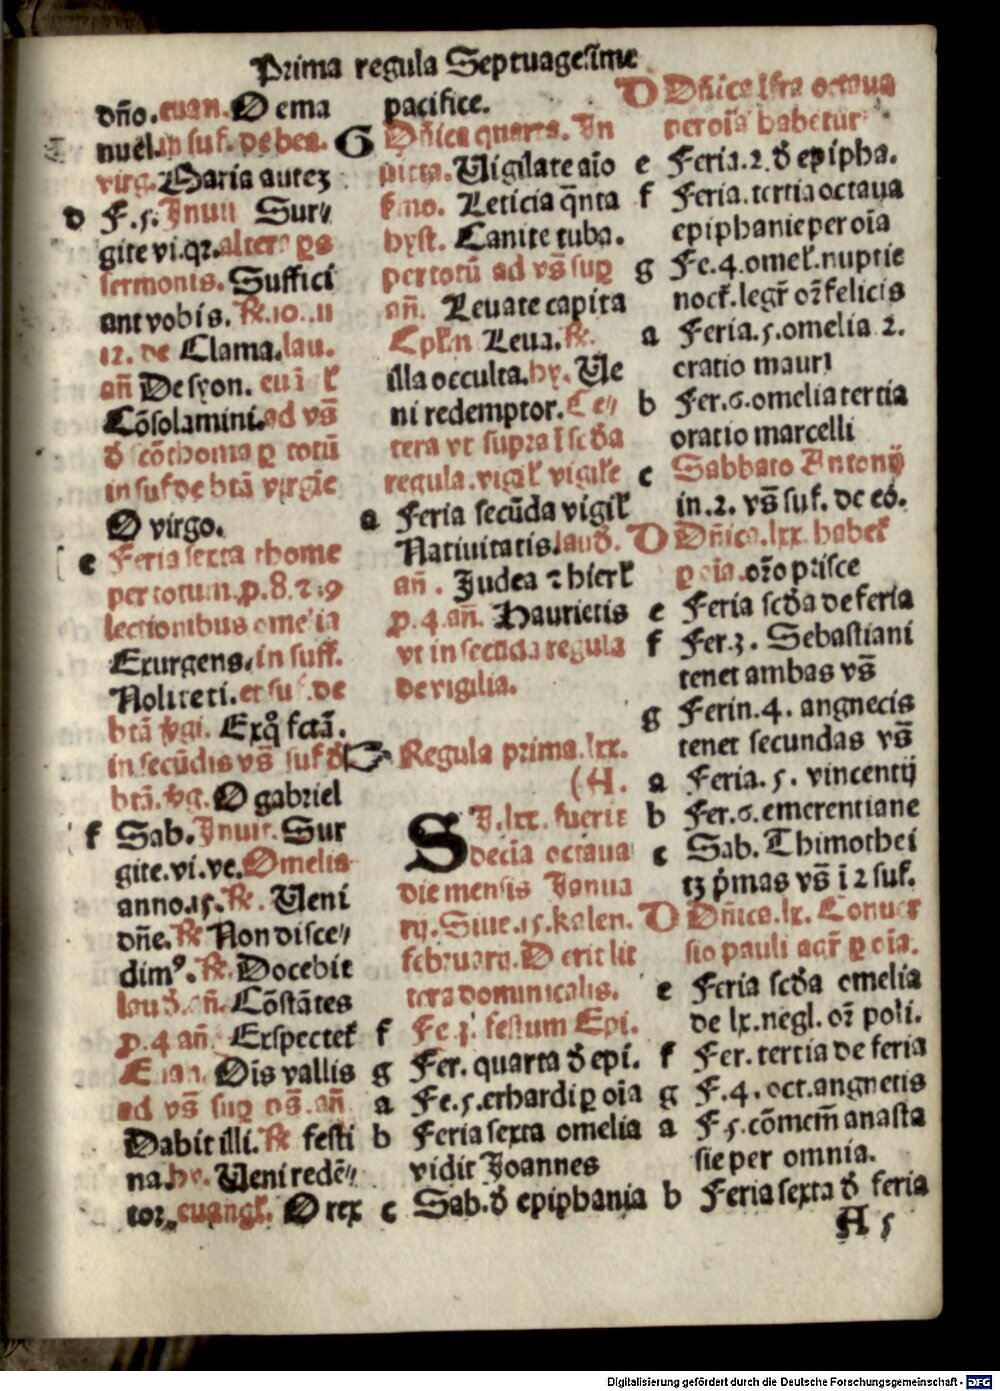 Prima regula Septuagesime
dño. euan. O ema
nuel. in suf. de bea.
virg. Maria autez
d F. 5. Inuit Sur⸗
gite vi. qr. alter⁹ ps
sermonis. Suffici
ant vobis. ℟. 10. 11
12. de Clama. lau.
añ De syon.
Cōsolamini. ad vs̄
đ scō thoma ꝑ totū
in suf de btā virgīe
O virgo.
e Feria sexta thome
per totum. p. 8. ⁊. 9
lectionibus omelia
Exurgens. in suff.
Nolite ti. et suf. de
btā v̄gi. Exq̊ fctā.
in secūdis vs̄ suf đ
btā. v̄g. O gabriel
f Sab. Inuit. Sur
gite. vi. ve. Omelia
anno. 15. ℟. Ueni
dñe. ℟ Non disce⸗
dim⁹. ℟. Docebit
lauđ. añ. Cōstātes
p. 4 añ. Exspectet᷑ f
Euan. Oīs vallis
ad vs̄ suꝑ ps̄. añ
Dabit illi. ℟ festi
na. hy. Ueni redē⸗
tor. euangł. O rex
pacifice.
G Dñica quarta. In
uita. Uigilate aīo
ẜmo. Leticia q̄nta
hyst. Canite tuba.
per totū ad vs̄ suꝑ
añ. Leuate capita
Cpłm Leua. ℟.
illa occulta. hy. Ue
ni redemptor. Ce⸗
tera vt supra ī scđa
regula. vigił vigiłe
a Feria secūda vigił
Natiuitatis. lauđ.
añ. Judea ⁊ hierł
p. 4. añ. Haurietis
vt in secūda regula
de vigilia.
☞ Regula prima. lxx.
(A.
SI. lxx. fuerit
decīa octaua
die mensis Janua
rij. Siue. 15. kalen.
februarij. D erit lit
tera dominicalis.
f Fe. 3. festum Epi.
g Fer. quarta đ epi.
a Fe. 5. erhardi ꝑ oīa
b Feria sexta omelia
vidit Joannes
c Sab. đ epiphania
D Dñica īfra octaua
per oīa habetur
e Feria. 2. đ epipha.
f Feria. tertia octaua
epiphanie per oīa
g Fe. 4. omeł. nuptie
noct̄. legr̄ oř felicis
a Feria. 5. omelia 2.
oratio mauri
b Fer. 6. omelia tertia
oratio marcelli
c Sabbato Antonij
in. 2. vs̄ suf. de eo.
D Dñica. lxx. habet᷑
ꝑ oīa. oro prisce
e Feria scđa de feria
f Fer. 3. Sebastiani
tenet ambas vs̄
g Ferin. 4. angnecis
tenet secundas vs̄
a Feria. 5. vincentij
b Fer. 6. emerentiane
c Sab. Thimothei
tz p̄mas vs̄ i 2 suf.
D Dñica. lx. Conuer
sio pauli agr̄ ꝑ oīa.
e Feria scđa omelia
de lx. negl. oř poli.
f Fer. tertia de feria
g F. 4. oct. angnetis
a F 5. cōmem̄ anasta
sie per omnia.
b Feria sexta đ feria
A 5
Digitalisierung gefördert durch die Deutsche Forschungsgemeinschaft - DFG